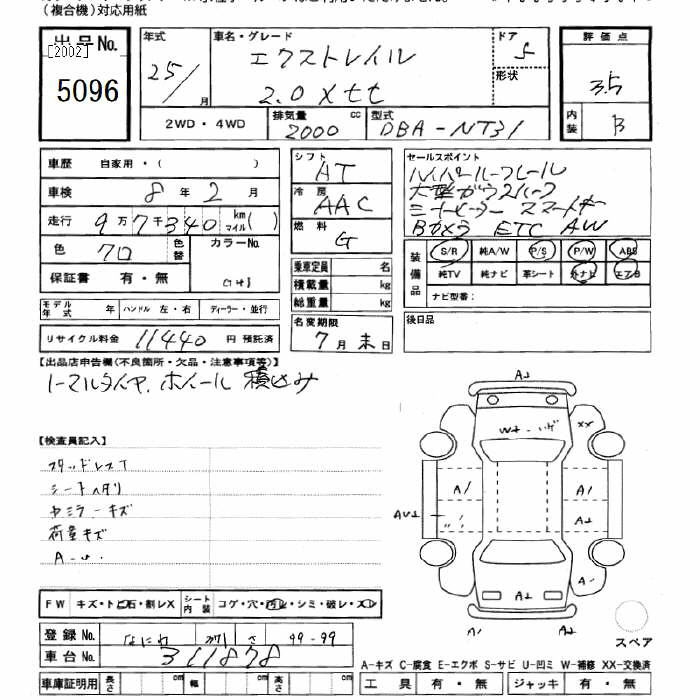 (複合機)対応用紙
出品No.
[2002]
5096
年式
25/
月
車名・グレード
エクストレイル
2.0 Xtt
ドア
5
形状
評価点
3.5
内装
B
2WD・4WD
排気量
2000
cc
型式
DBA-NT31
車歴 自家用・( )
車検 8年 2月
走行 9万7千340 km マイル( )
色 クロ
色替
カラーNo.
保証書 有・無
モデル年式 年 ハンドル 左・右 ディーラー・並行
リサイクル料金 11440 円 預託済
シフト
AT
冷房
AAC
燃料
G
乗車定員 名
積載量 kg
総重量 kg
名変期限
7月末日
セールスポイント
ハイパールーフレール
大型ガラスルーフ
Bカメラ ETC AW
装備品
S/R 純A/W P/S P/W ABS
純TV 純ナビ 革シート 外ナビ エアB
ナビ型番:
後日品
【出品店申告欄(不良箇所・欠品・注意事項等)】
ノーマルタイヤ、ホイール 積込み
【検査員記入】
スタッドレス
シートヘタリ
キズ
荷室キズ
FW キズ・トビ石・割レX
シート内装 コゲ・穴・汚レ・シミ・破レ・スレ
登録No. なにわ 99-99
車台No. 311878
車庫証明用 長さ cm 幅 cm 高さ cm
A1
XX
A1
A1
A1
スペア
A-キズ C-腐食 E-エクボ S-サビ U-凹ミ W-補修 XX-交換済
工具 有・無 ジャッキ 有・無